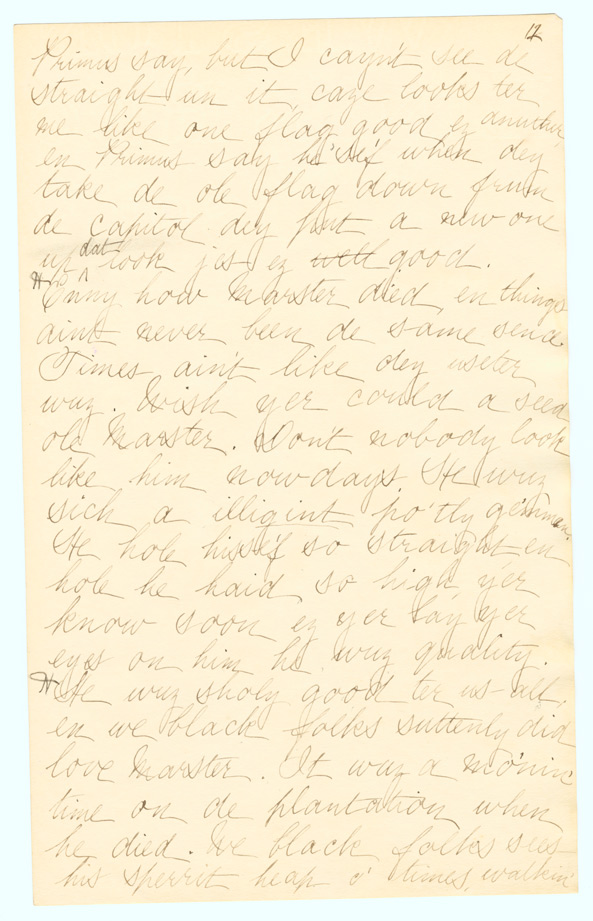 12
Primus say, but I cayn't see de
straight un it, caze looks ter
me like one flag good ez anuther,
en Primus say he'se'f when dey
take de ole flag down frum
de capitol dey put a new one
up dat look jes ez well good.
Enny how Marster died, en things
aint never been de same sence
Times ain't like dey useter
wuz. Wish yer could a seed
ole Marster. Don't nobody look
like him nowdays He wuz
sich a illigint po'tly gemman.
He hole hisse'f so straight en
hole he haid so high, yer
know soon ez yer lay yer
eyes on him he wuz quality.
He wuz sholy good ter us-all,
en we black folks suttenly did
love Marster. It wuz a mo'nin'
time on de plantation when
he died. We black folks sees
his sperrit heap o' times, walkin'